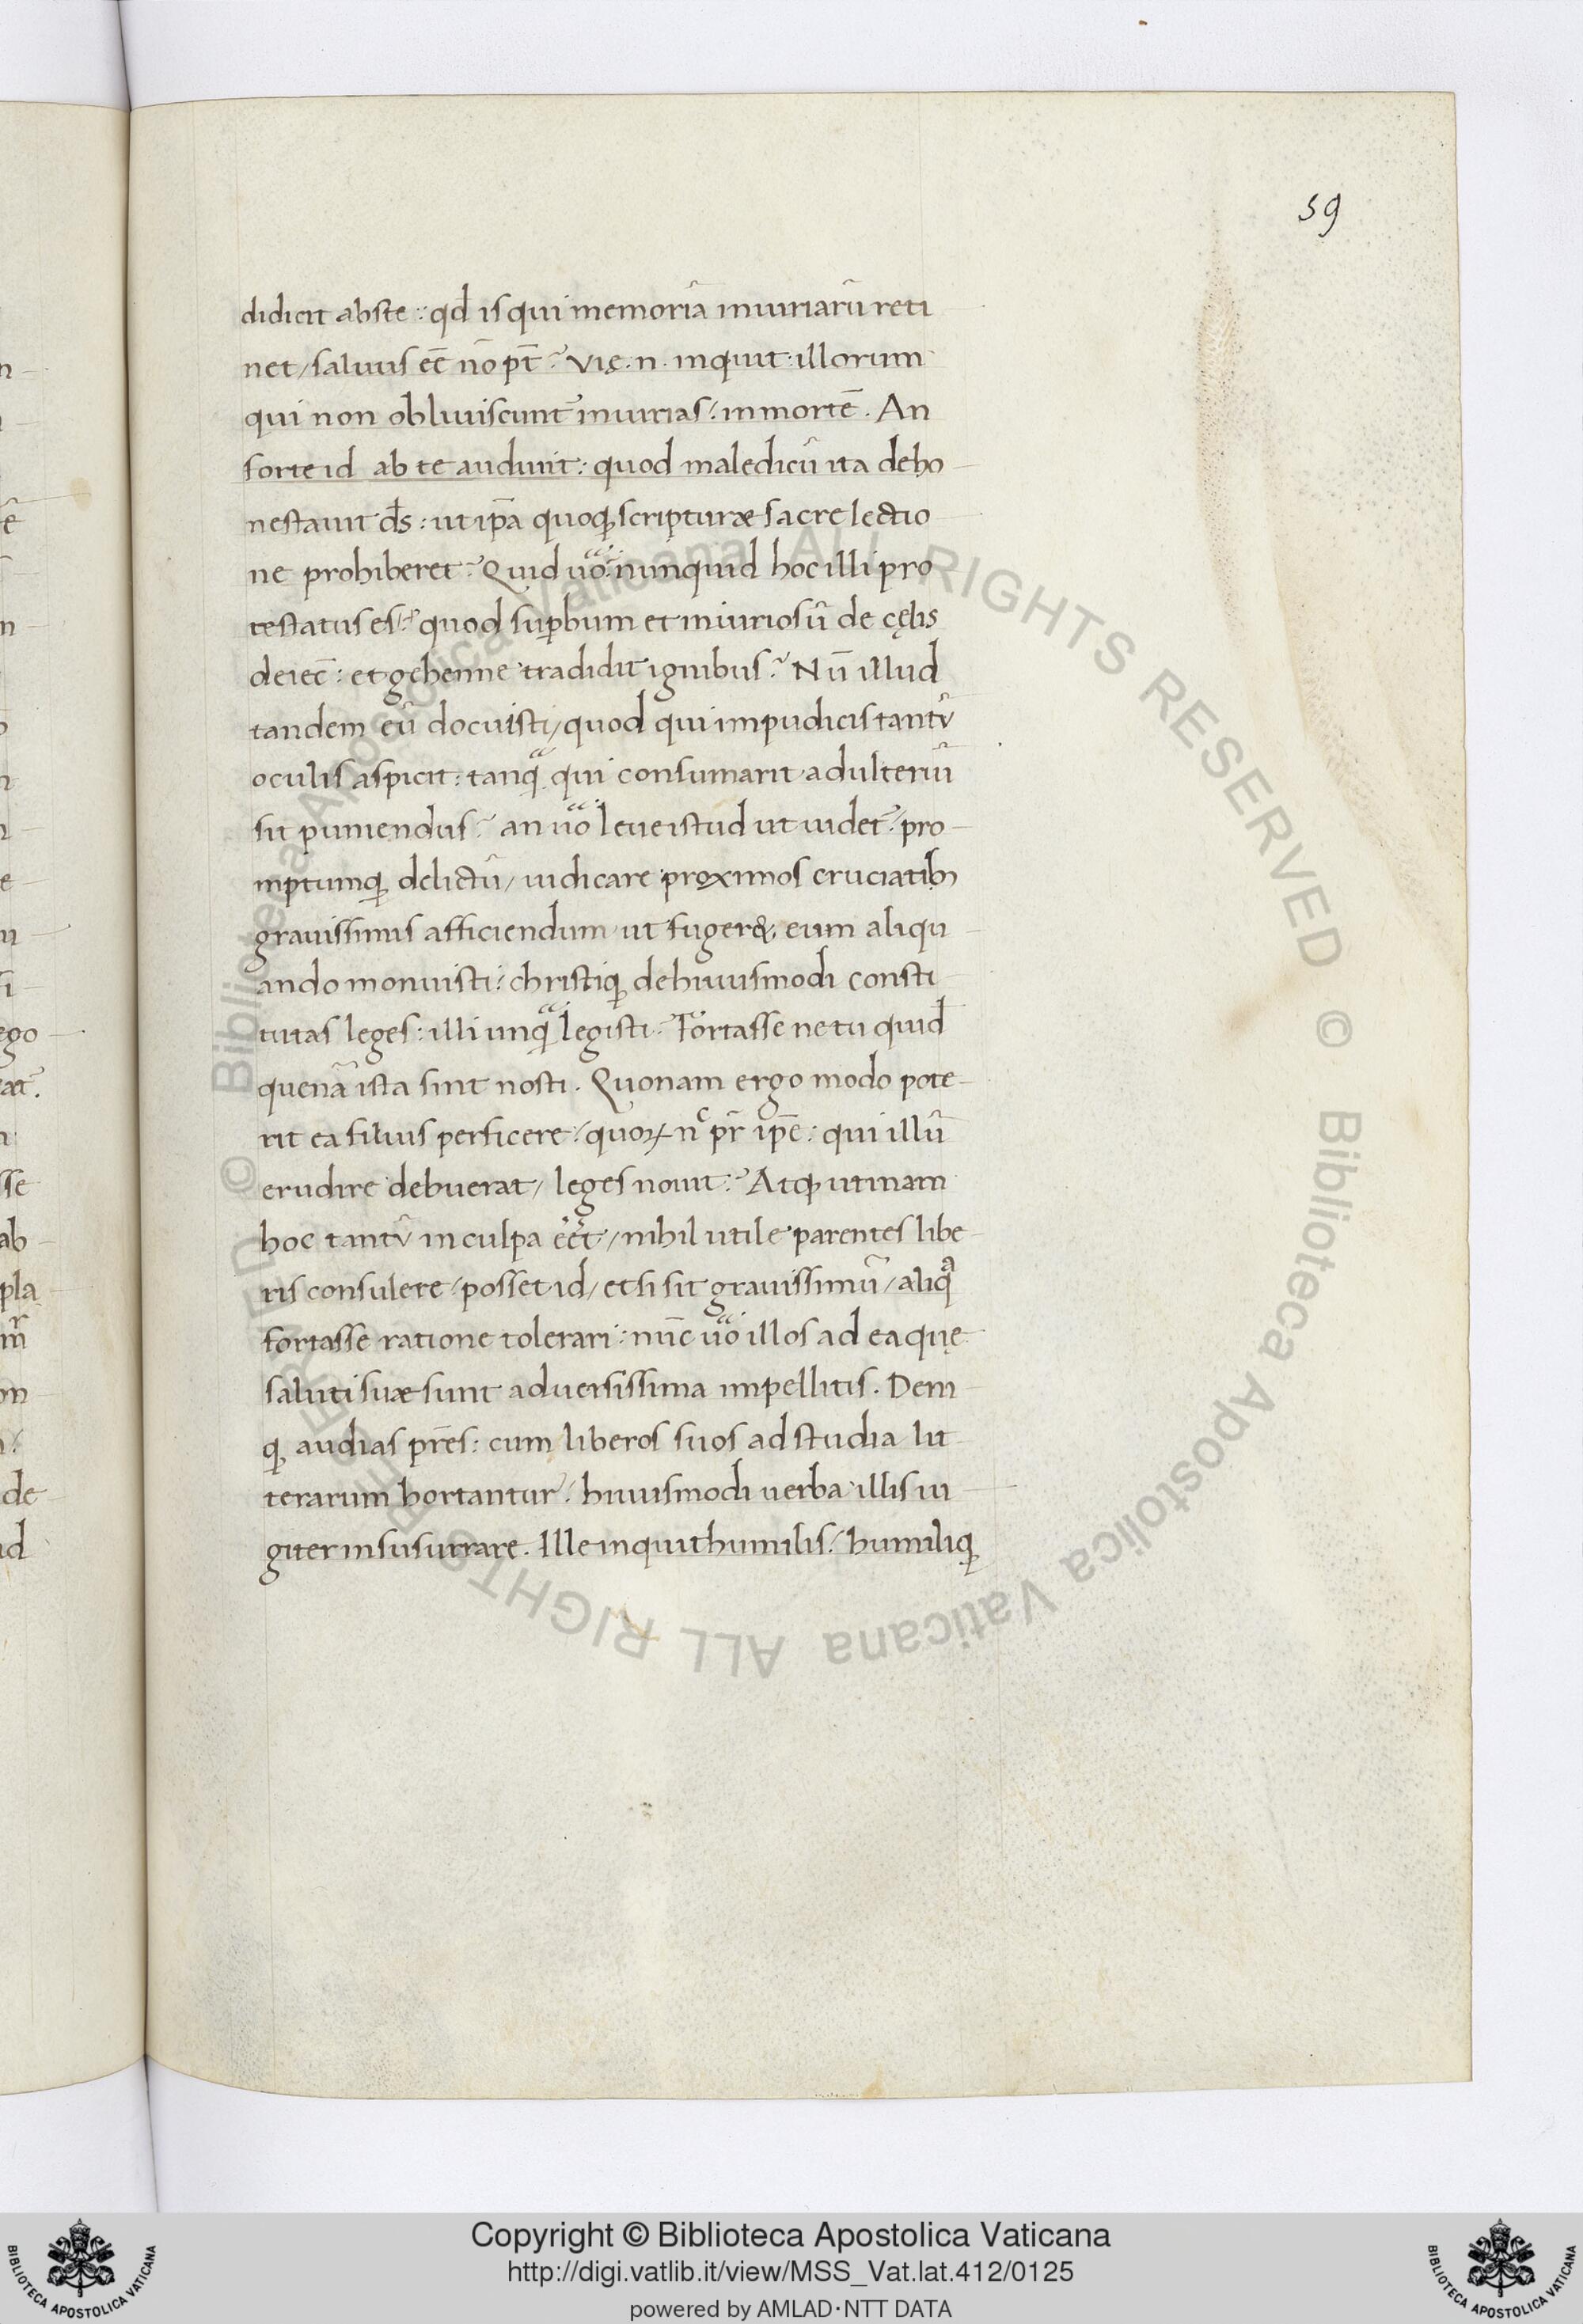 59
didicit abste: qđ is qui memoriā iniuriarū reti
net/ saluus eē nō pt̄? Vię .n. inquit illorum
qui non obliuiscunt᷑ iniurias: in mortē. An
forte id ab te audiuit: quod maledicū ita deho
nestauit ds̄: ut ip̄a quoqꝫ scripturæ sacre lectio
ne prohiberet? Quid uͦo? nunquid hoc illi pro
testatus es? quod suꝑbum et iniuriosū de cęlis
deiec̄: et gehenne tradidit ignibus? Nū illud
tandem eū docuisti/ quod qui impudicis tantū
oculis aspicit: tanqͣꝫ qui consumarit adulteriū
sit puniendus? an uͦo leue istud ut uidet᷑? pro
mptumqꝫ delictū/ iudicare proximos cruciatibꝫ
grauissimis afficiendum ut fuger&, eum aliqu
ando monuisti? christiqꝫ de hiuusmodi consti
tutas leges: illi unqͣꝫ legisti? Fortasse ne tu quid
quenā ista sint nosti. Quonam ergo modo pote
rit ea filius perficere? quoꝝ nͨ pr̄ ip̄e: qui illū
erudire debuerat/ leges nouit? Atqꝫ utinam
hoc tantū in culpa eēt/ nihil utile parentes libe
ris consulere/ posset id/ et si sit grauissimū/ aliqͣ
fortasse ratione tolerari: nūc uͦo illos ad ea quę
saluti suæ sunt aduersissima impellitis. Deni
qꝫ audias pr̄es: cum liberos suos ad studia lit
terarum hortantur/ hiuusmodi uerba illis iu
giter insusurrare. Ille inquit humilis/ humiliqꝫ
© Biblioteca Apostolica Vaticana ALL RIGHTS RESERVED © Biblioteca Apostolica Vaticana ALL RIGHTS RESERVED
Copyright © Biblioteca Apostolica Vaticana
http://digi.vatlib.it/view/MSS_Vat.lat.412/0125
powered by AMLAD·NTT DATA
BIBLIOTECA APOSTOLICA VATICANA
BIBLIOTECA APOSTOLICA VATICANA